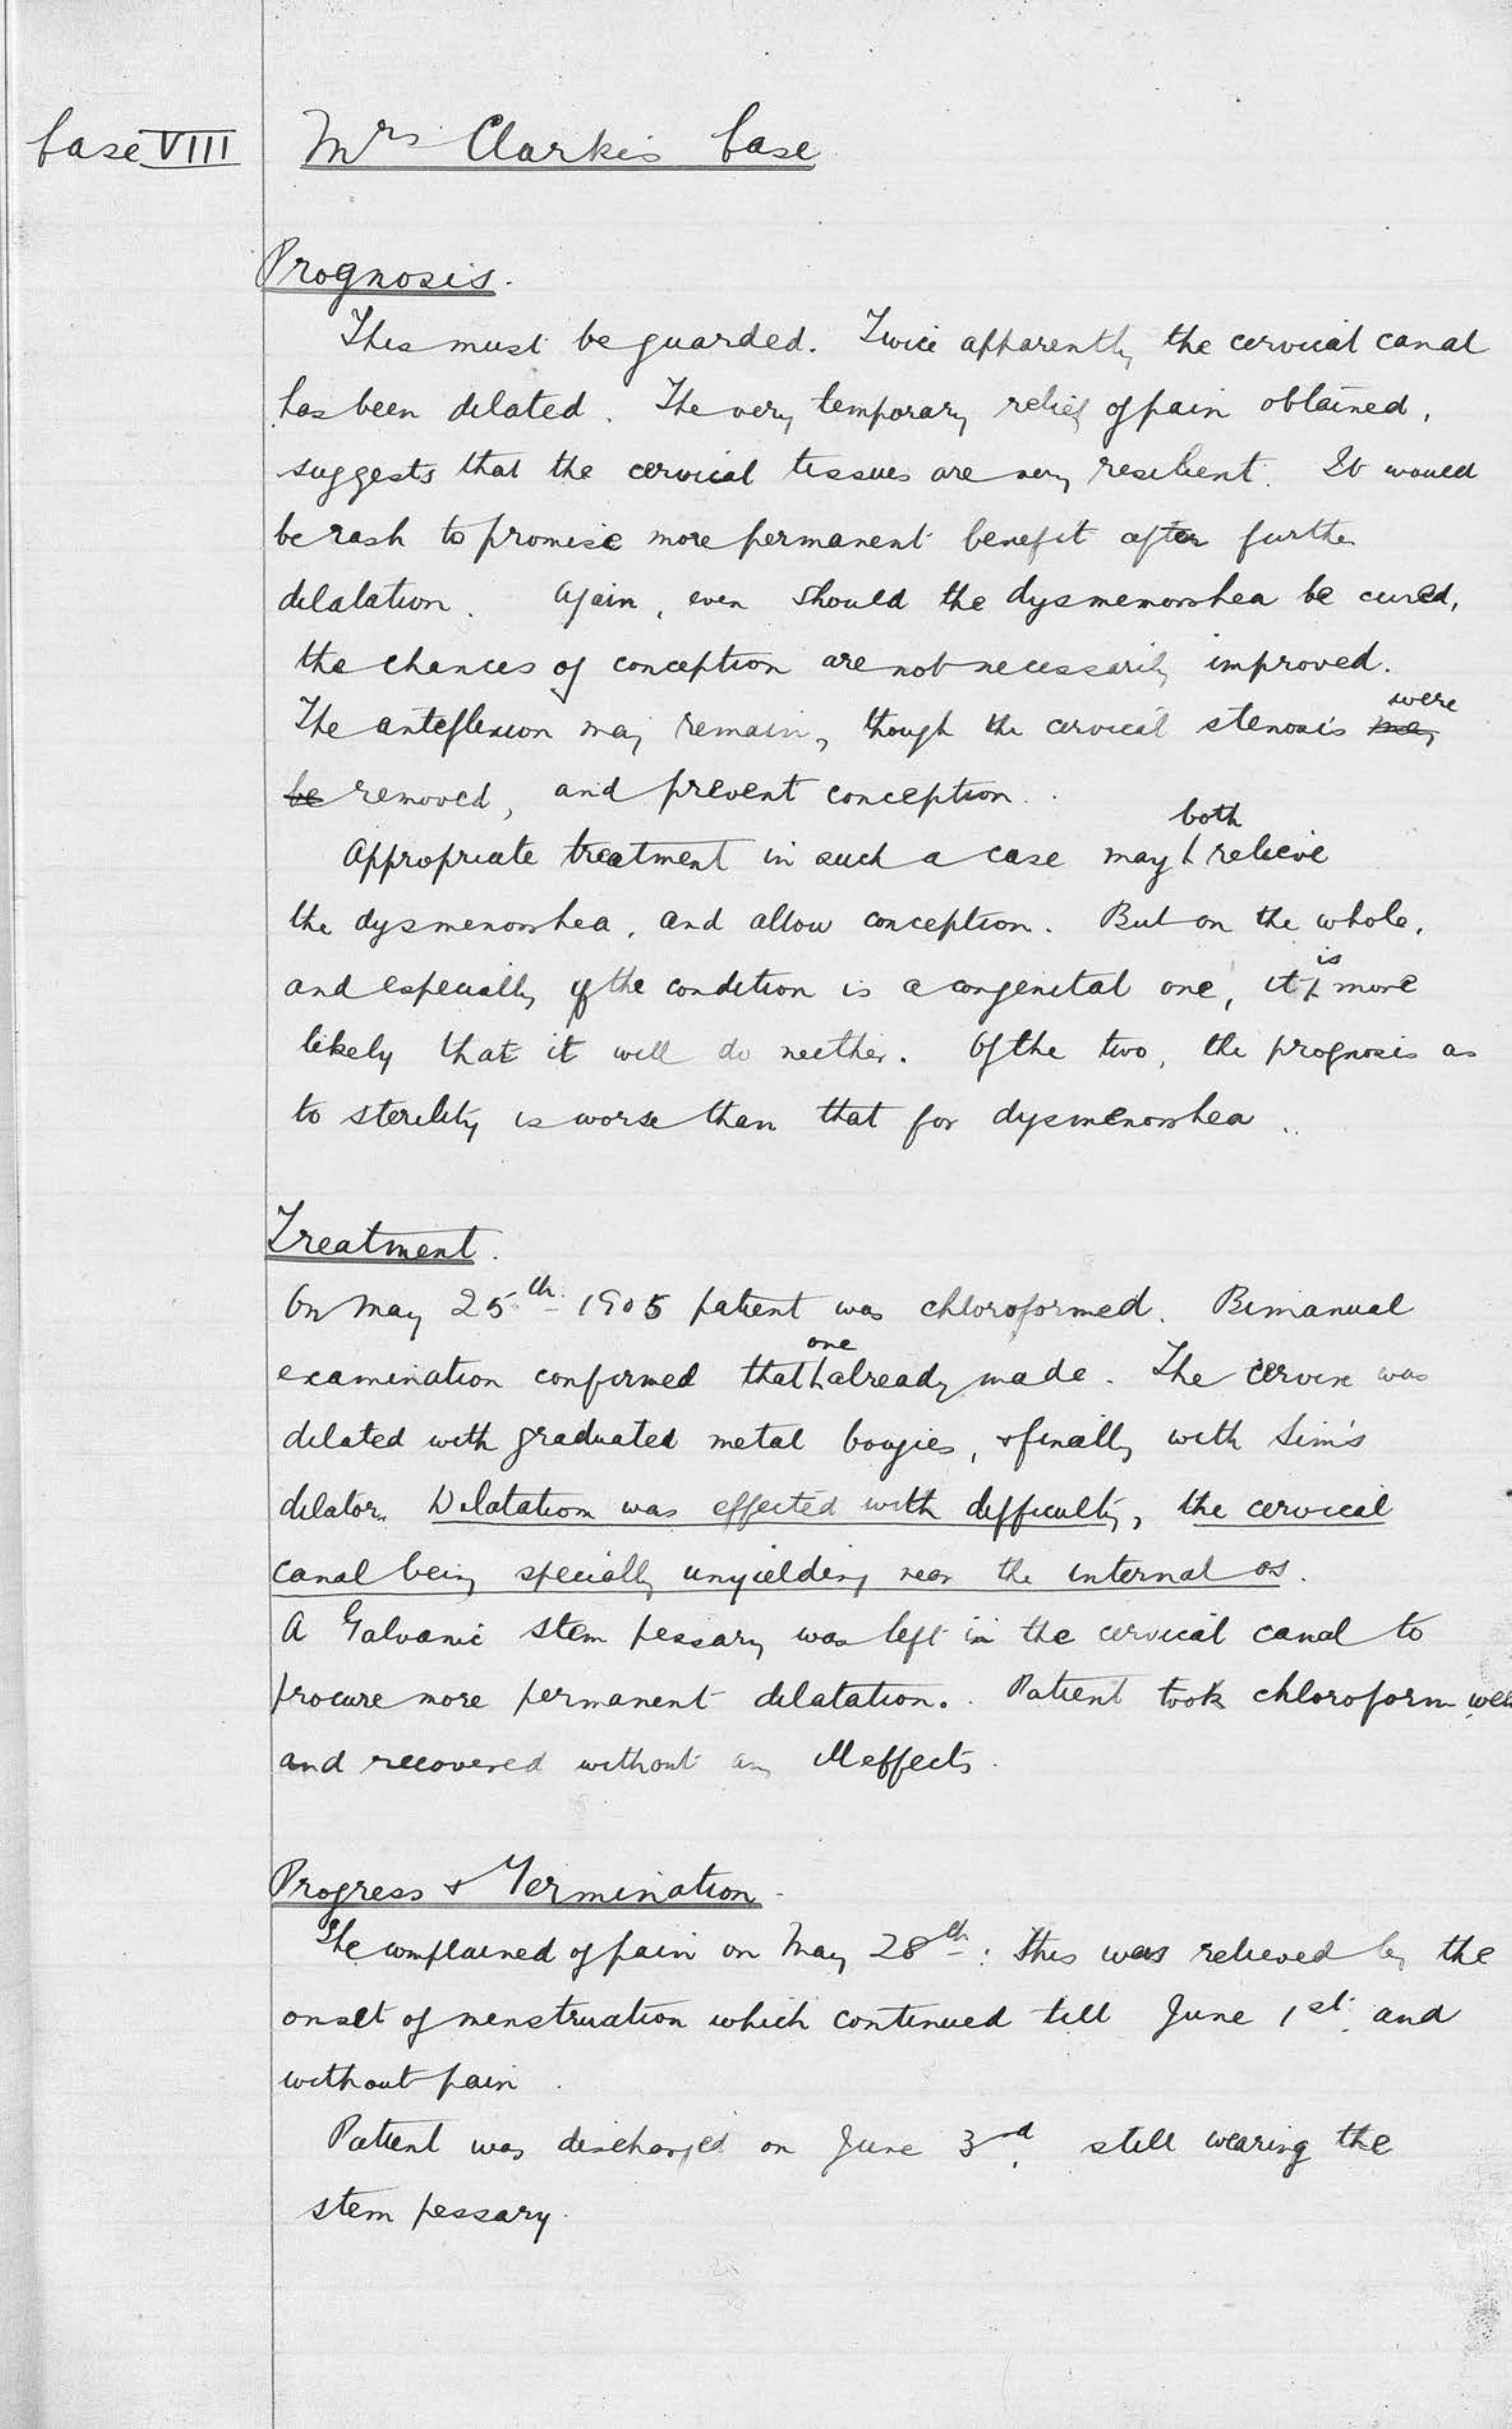 Case VIII Mrs Clarke's Case
Prognosis.
This must be guarded. Twice apparently the cervical canal
has been dilated. The very temporary relief of pain obtained,
suggests that the cervical tissues are very resilient. It would
be rash to promise more permanent benefit after further
dilatation. Again, even should the dysmenorrhea be cured,
the chances of conception are not necessarily improved.
The anteflexion may remain, though the cervical stenosis may were
be removed, and prevent conception.
Appropriate treatment in such a case may both relieve
the dysmenorrhea, and allow conception. But on the whole,
and especially if the condition is a congenital one, it is more
likely that it will do neither. Of the two, the prognosis as
to sterility is worse than that for dysmenorrhea.
Treatment.
On May 25th 1905 patient was chloroformed. Bimanual
examination confirmed that one already made. The cervix was
dilated with graduated metal bougies, & finally with Sim's
dilator. Dilatation was effected with difficulty, the cervical
canal being specially unyielding near the internal os.
A Galvanic stem pessary was left in the cervical canal to
procure more permanent dilatation. Patient took chloroform well
and recovered without any ill effects.
Progress & Termination.
She complained of pain on May 28th: this was relieved by the
onset of menstruation which continued till June 1st. and
without pain.
Patient was discharged on June 3rd. still wearing the
stem pessary.